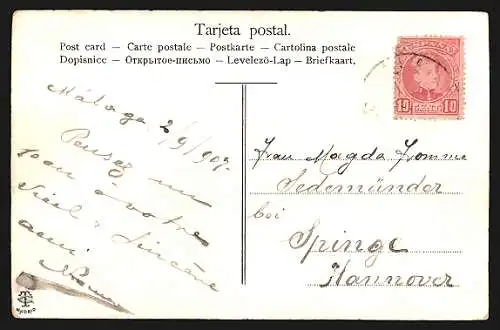 Tarjeta postal.
Post card — Carte postale — Postkarte — Cartolina postale
Dopisnice — Открытое-письмо — Levelező-Lap — Briefkaart.
10 10
Málaga 2/9/907.
Pensez un
peu à votre
Vieil & Sincère
ami
Frau Magda Fromme
Jedemünder
bei
Springe
Hannover